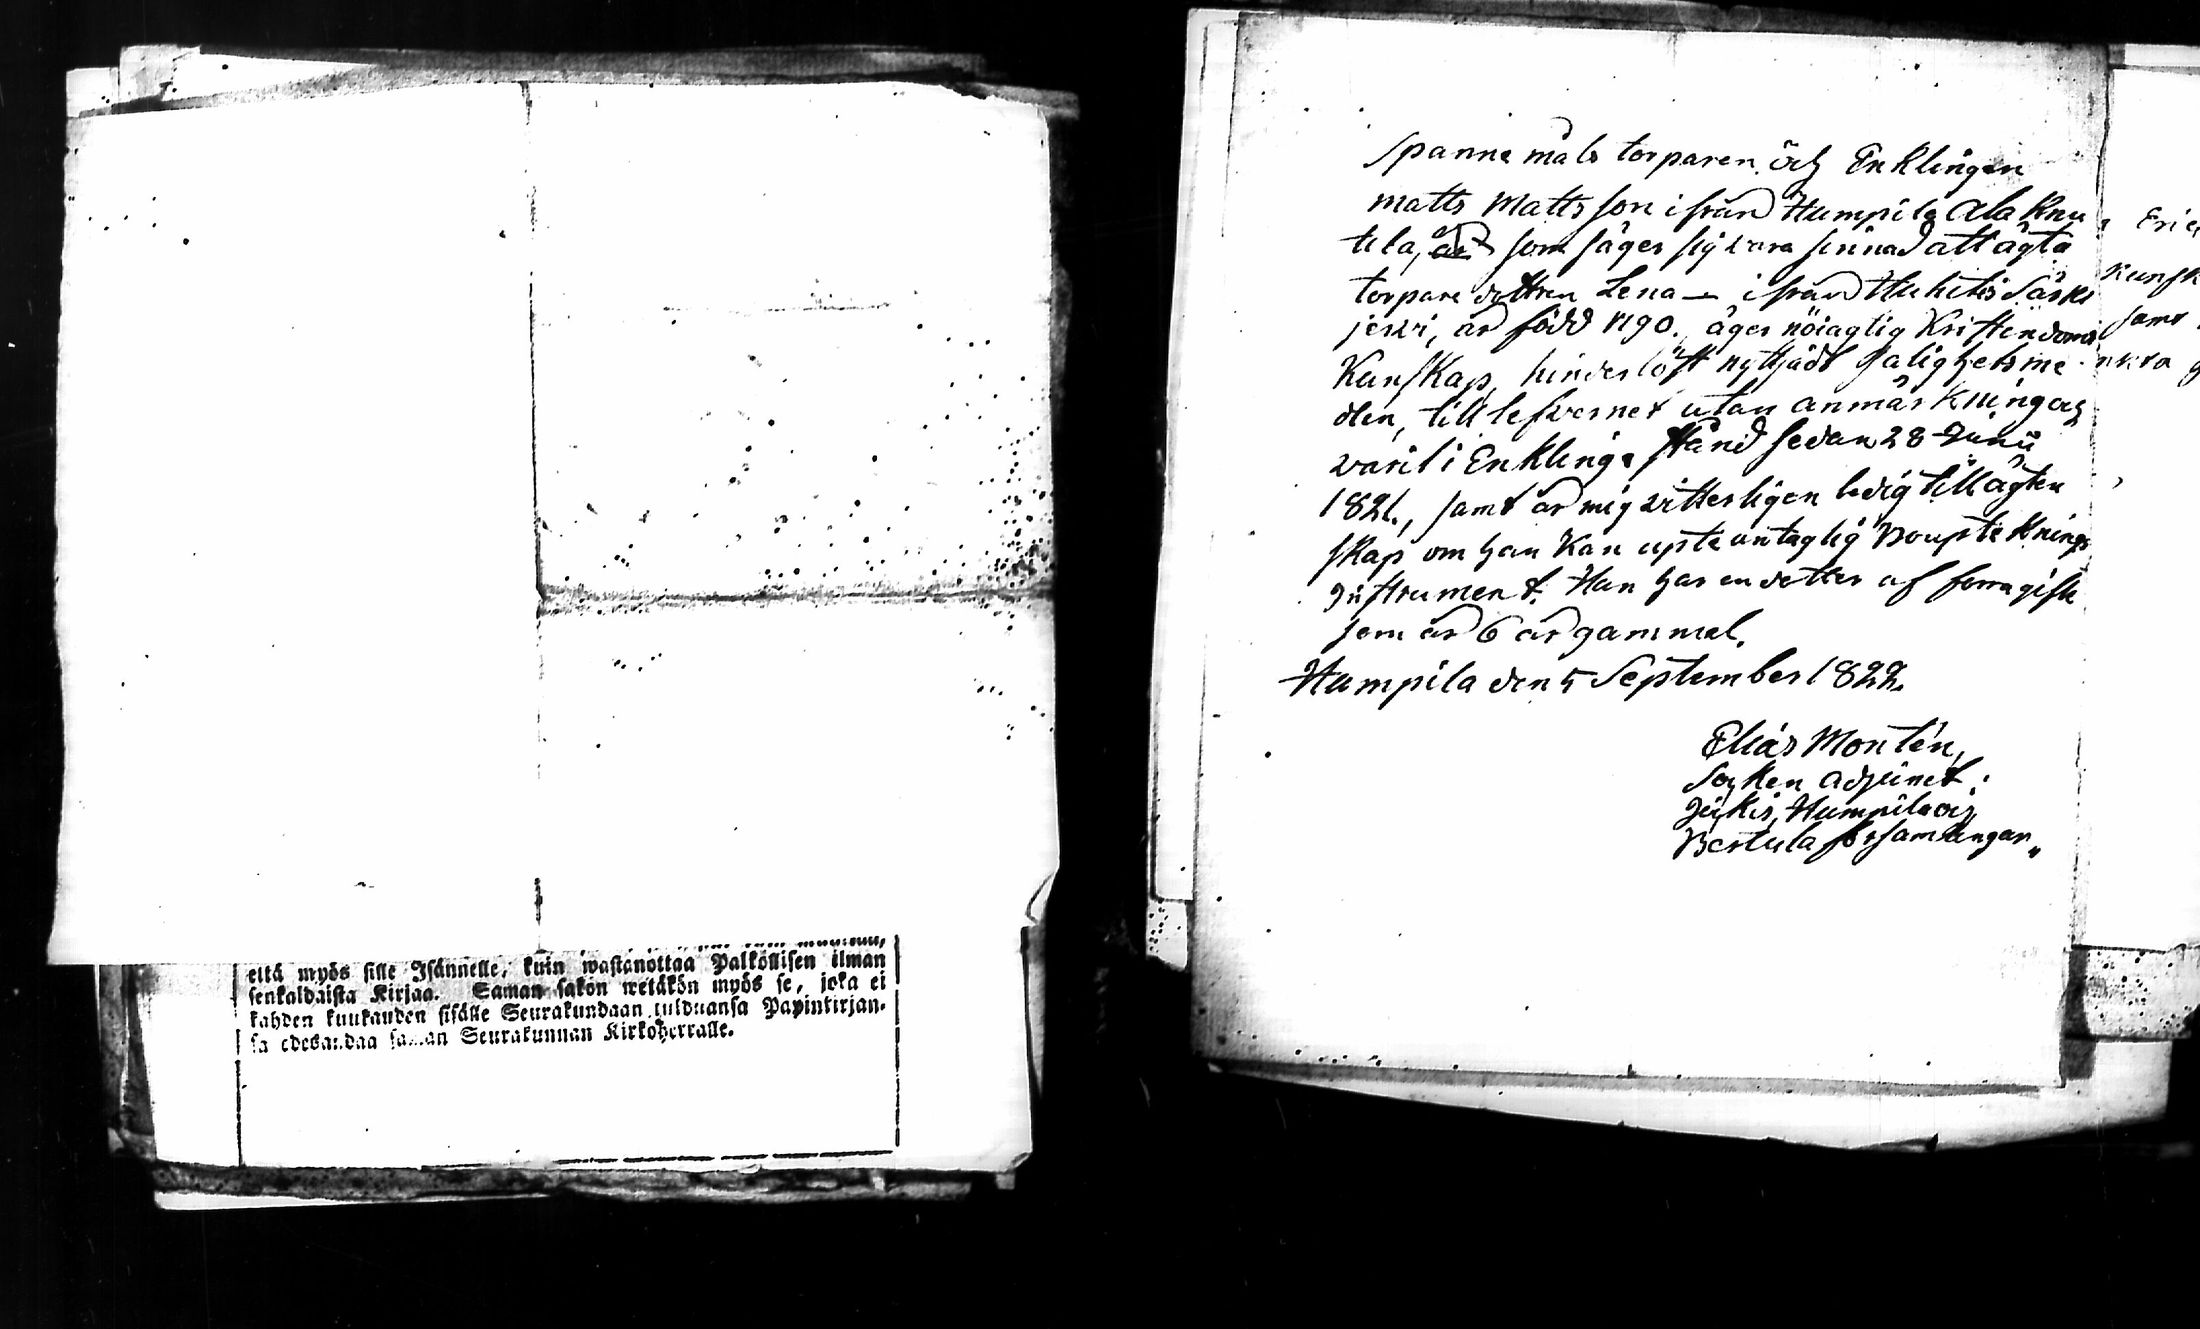 että myös sille Isännelle, kuin wastanottaa Palkollisen ilman
senkaldaista Kirjaa. Saman sakon wetäkön myös se, joka ei
kahden kuukauden sisälle Seurakundaan tulduansa Papinkirjan-
sa edesandaa saman Seurakunnan Kirkoherralle.
Spannemåls torparen och Enklingen
Matts Mattsson ifrån Humpila Ala Knu
tila, som säger sig vara sinnad att ägta
torpare dottren Lena — ifrån Huhtis Särki
jervi, är född 1790, äger nöiagtig Kristendoms
Kunskap, hinderlöst nyttjadt salighetsme-
dlen, till lefvernet utan anmärkning och
varit i Enklings stånd sedan 28 Junii
1821, samt är mig vitterligen ledig till ägten
skap om han kan upte antaglig Boupteknings
Instrument. Han har en dotter af förra gifte
som är 6 år gammal.
Humpila den 5 September 1822.
Elias Montén,
Soken adjunct i
Jokis, Humpila och
Bertula församlingar
Eric
Kunsk
samt